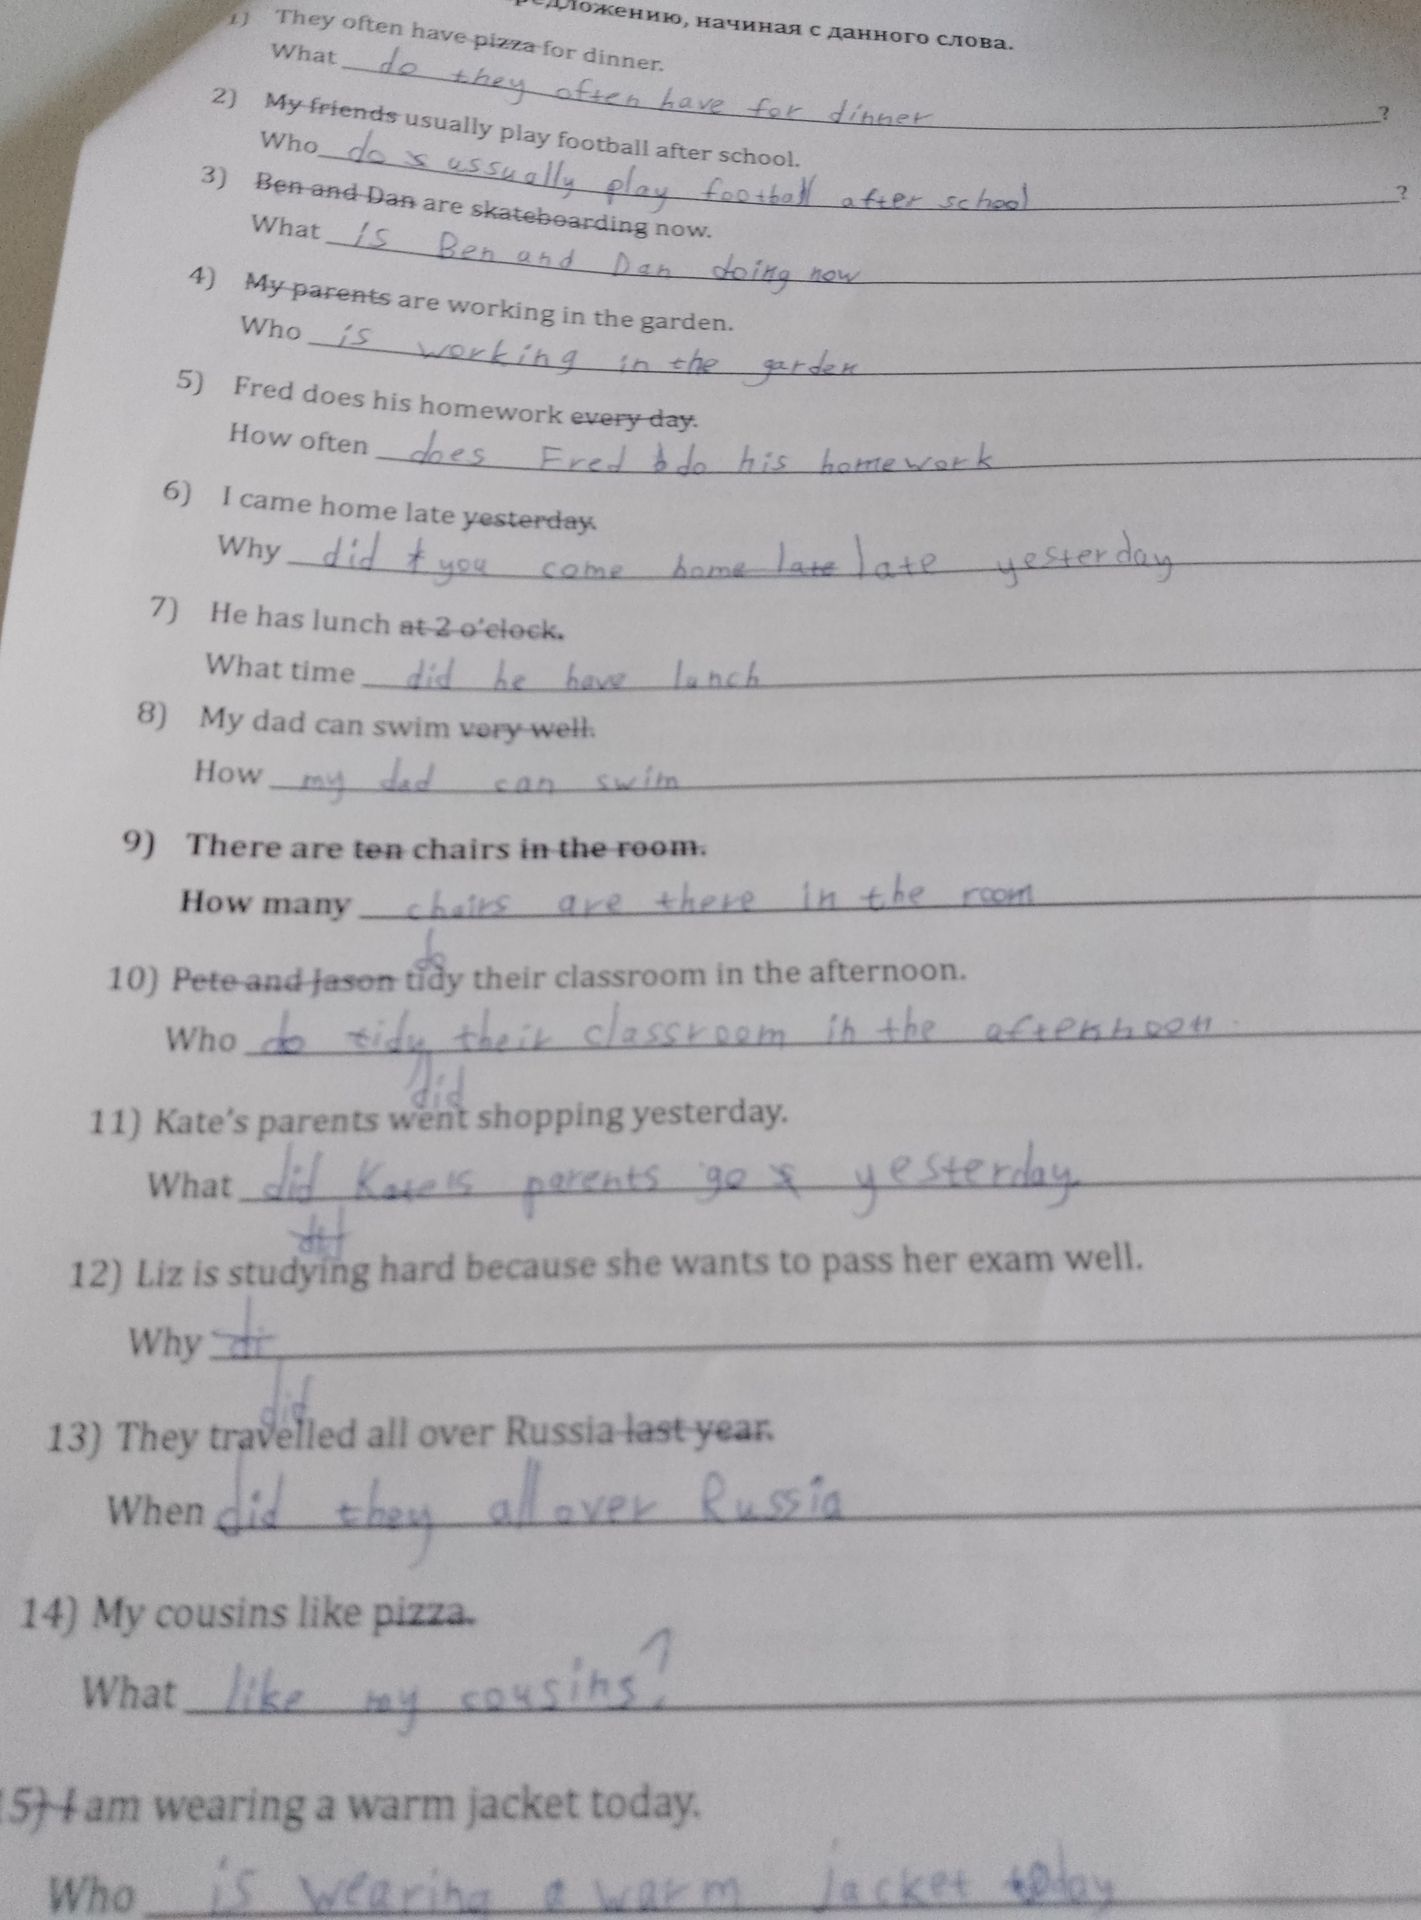 предложению, начиная с данного слова.
1) They often have pizza for dinner.
What do they often have for dinner ?
2) My friends usually play football after school.
Who do s ussually play football after school ?
3) Ben and Dan are skateboarding now.
What is Ben and Dan doing now
4) My parents are working in the garden.
Who is working in the garden
5) Fred does his homework every day.
How often does Fred do his homework
6) I came home late yesterday.
Why did you come home late late yesterday
7) He has lunch at 2 o'clock.
What time did he have lunch
8) My dad can swim very well.
How my dad can swim
9) There are ten chairs in the room.
How many chairs are there in the room
do
10) Pete and Jason tidy their classroom in the afternoon.
Who do tidy their classroom in the afternoon.
did
11) Kate's parents went shopping yesterday.
What did Kate's parents go yesterday
12) Liz is studying hard because she wants to pass her exam well.
Why di
did
13) They travelled all over Russia last year.
When did they all over Russia
14) My cousins like pizza.
What like my cousins?
5) I am wearing a warm jacket today.
Who is wearing a warm jacket today